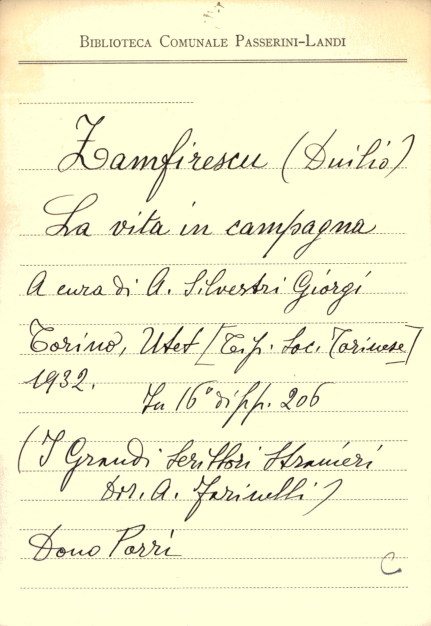 BIBLIOTECA COMUNALE PASSERINI-LANDI
Zamfirescu (Duilio)
La vita in campagna
A cura di A. Silvestri Giorgi
Torino, Utet [Tip. Soc. Torinese]
1932.
In 16° di pp. 206
(I Grandi Scrittori Stranieri
Dir. A. Farinelli)
Dono Porri
C